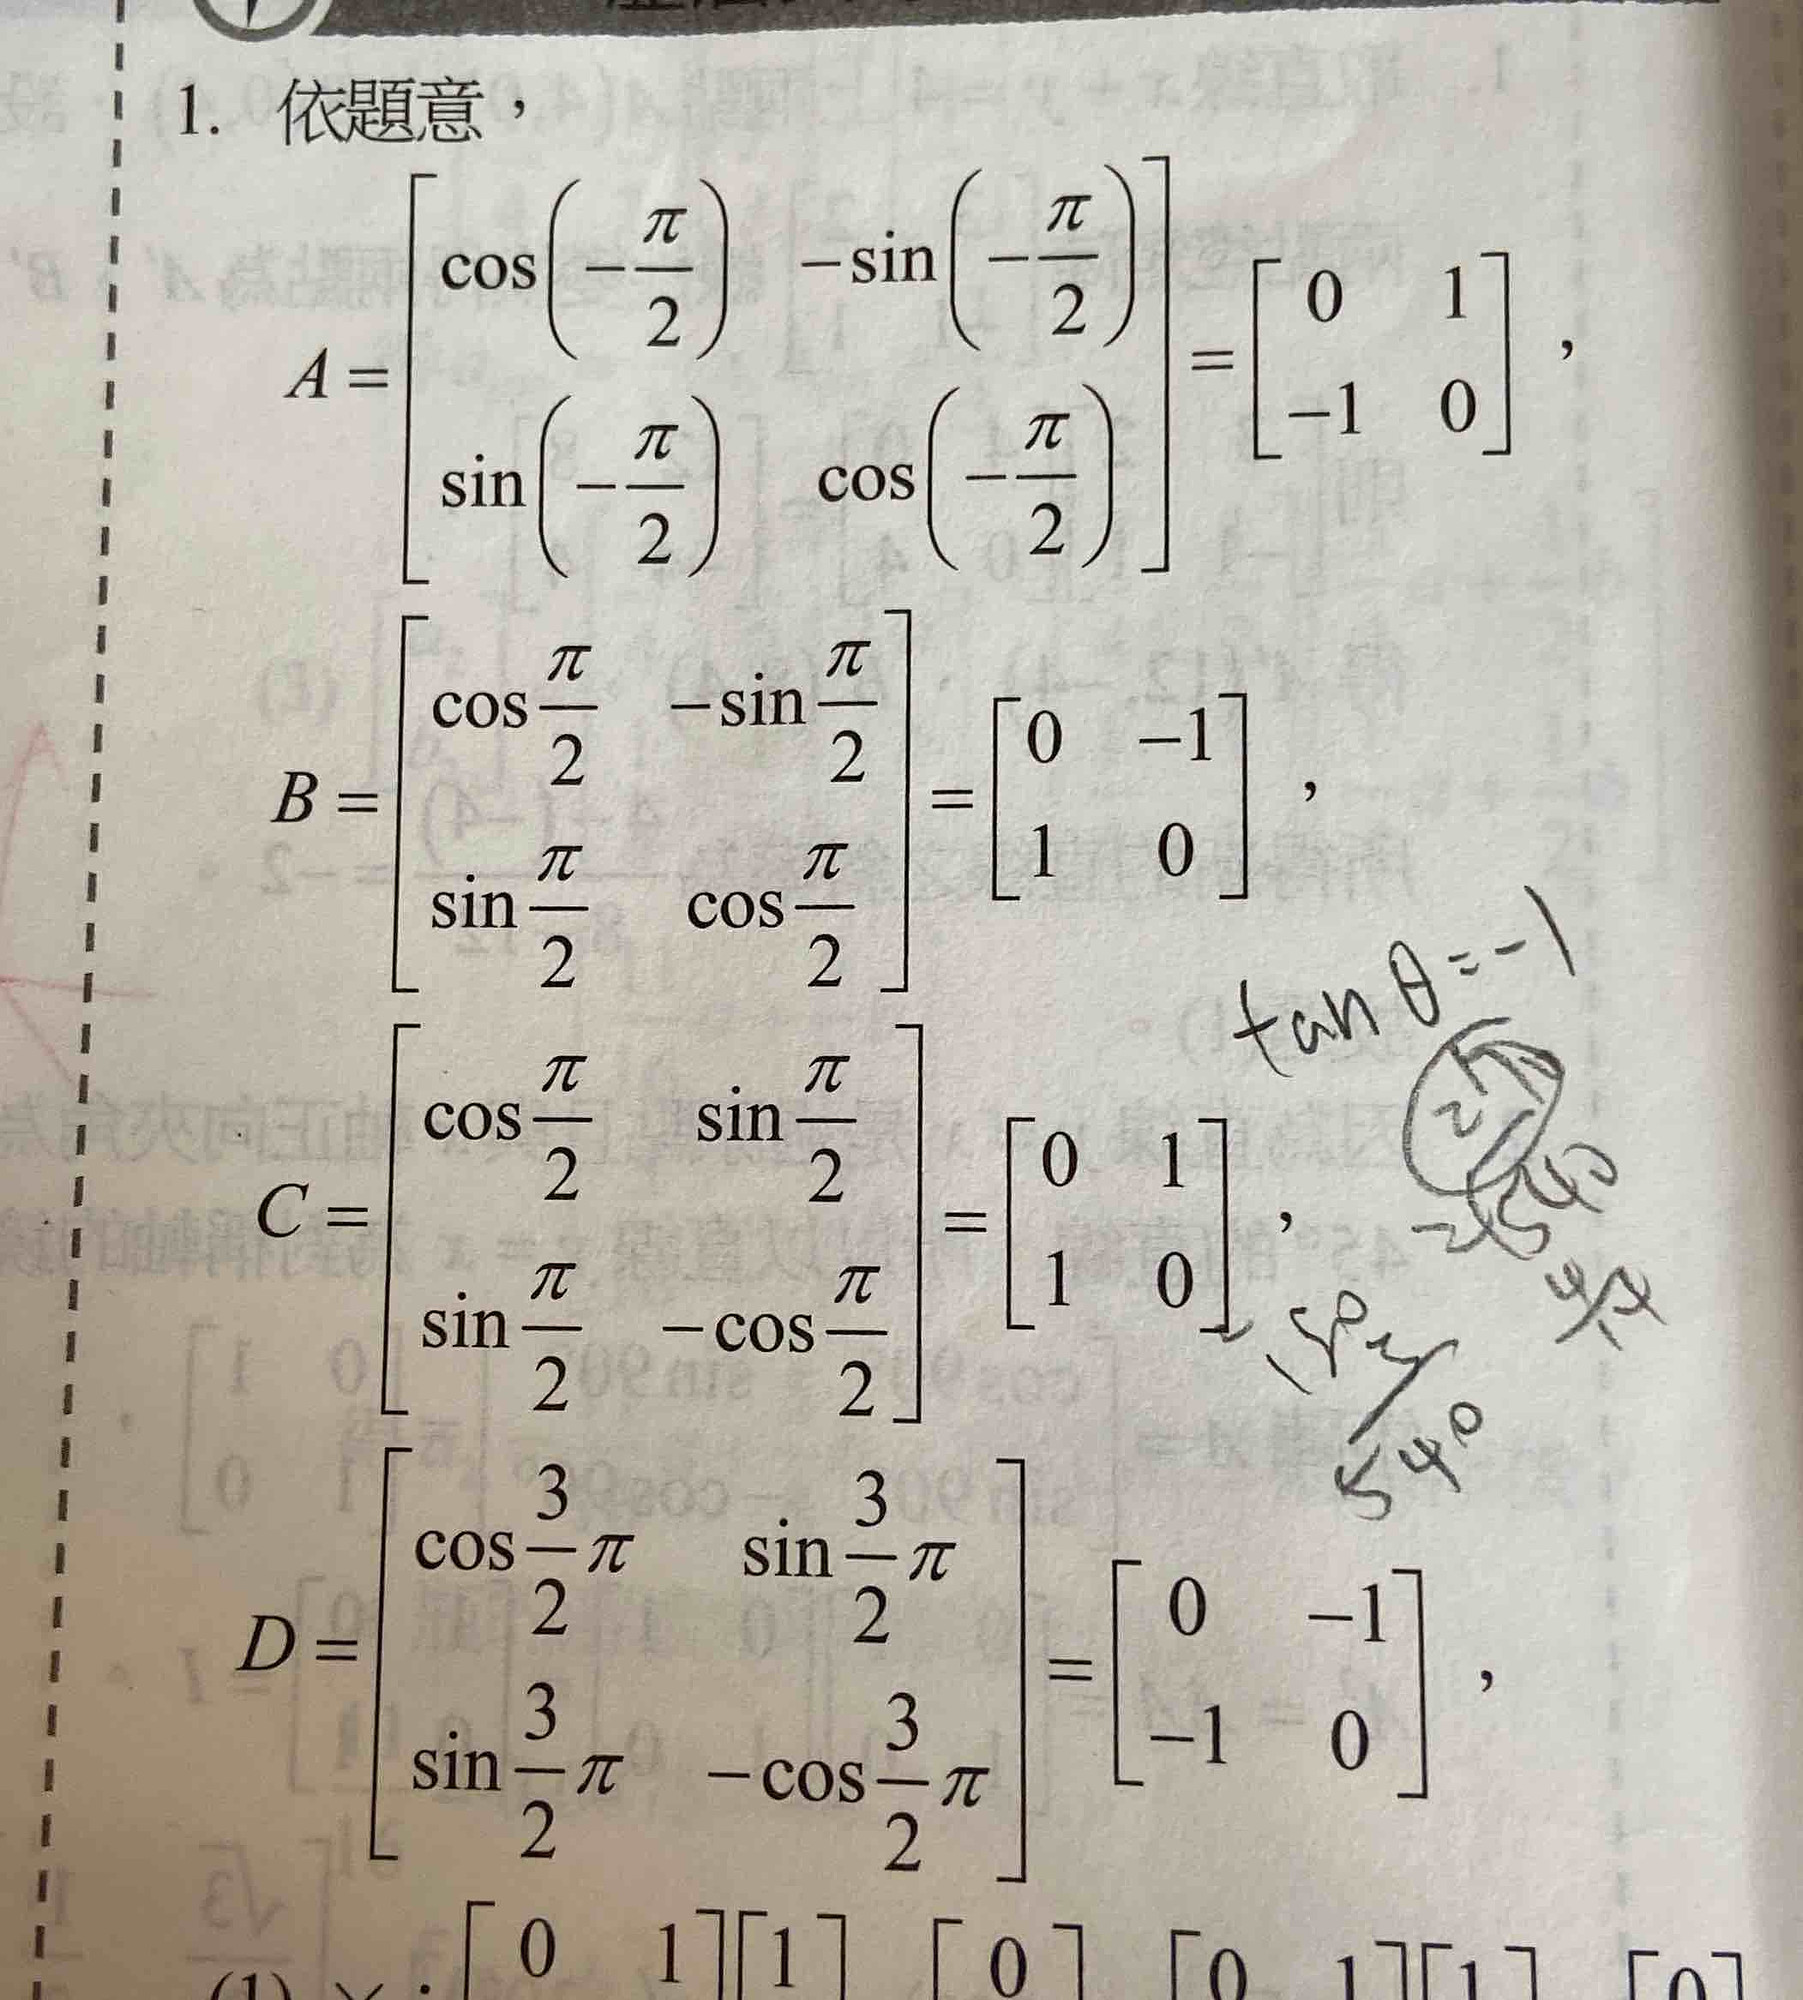 1. 依題意，
A = [cos(−π/2) −sin(−π/2)
sin(−π/2) cos(−π/2)] = [0 1
−1 0] ，
B = [cos π/2 −sin π/2
sin π/2 cos π/2] = [0 −1
1 0] ，
C = [cos π/2 sin π/2
sin π/2 −cos π/2] = [0 1
1 0] ，
D = [cos 3/2 π sin 3/2 π
sin 3/2 π −cos 3/2 π] = [0 −1
−1 0] ，
tan θ = −1
540
(1) × : [0 1][1] [0] [0 1][1] [0]